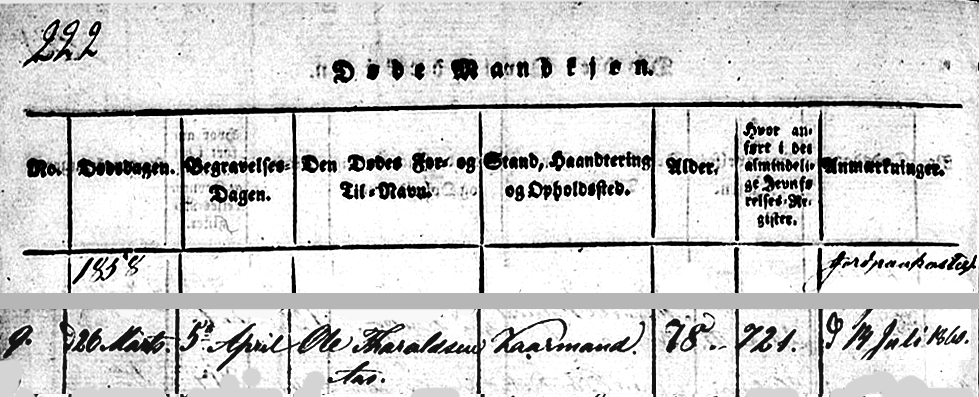 222
Døde Mandkjøn.
No. Dødsdagen. Begravelses- Dagen. Den Dødes For- og Til-Navn. Stand, Haandtering og Opholdssted. Alder. Hvor an- ført i det almindeli- ge Jevnfø- relses-Re- gister. Anmærkninger.
1858 Jordpaakastelse
9. 26 Marts. 5te April Ole Tharaldsen Kaarmand. 78 721. 19 Juli 1860.